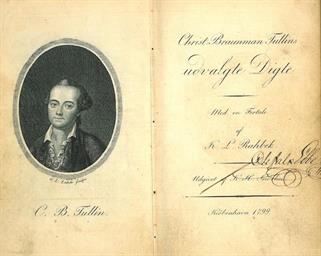 C. B. Tullin.
Christ. Braunman Tullins
udvalgte Digte
Med en Fortale
af
K. L. Rahbek
Udgivet af
Kiöbenhavn 1799